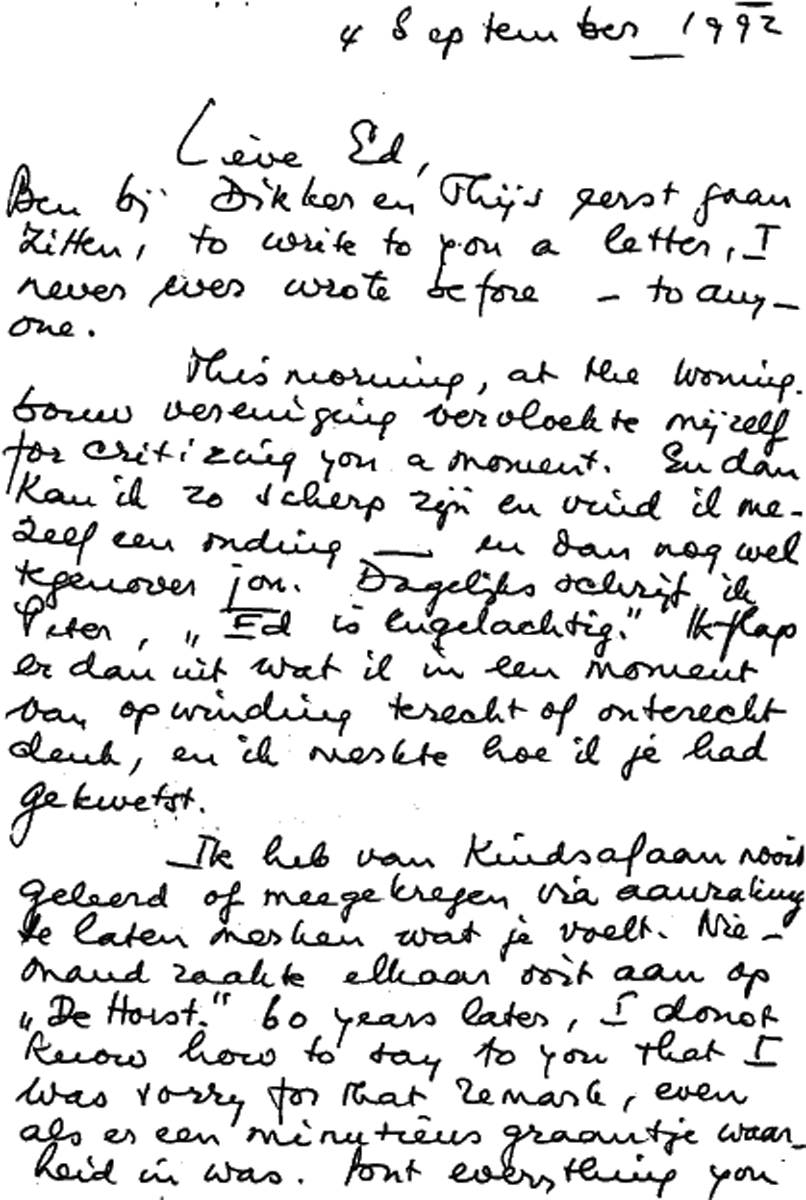 4 September 1992
Lieve Ed,
Ben bij Dikker en Thijs eerst gaan
zitten, to write to you a letter, I
never ever wrote before – to any–
one.
This morning, at the Woning–
bouw vereniging vervloekte mijzelf
for critizing you a moment. En dan
kan ik zo scherp zijn en vind ik me–
zelf een onding — en dan nog wel
tegenover jou. Dagelijks schrijf ik
Peter, „Ed is engelachtig.” Ik flap
er dan uit wat ik in een moment
van opwinding terecht of onterecht
denk, en ik merkte hoe ik je had
gekwetst.
Ik heb van kindsafaan nooit
geleerd of meegekregen via aanraking
te laten merken wat je voelt. Nie–
mand raakte elkaar ooit aan op
„De Horst.” 60 years later, I donot
know how to say to you that I
was sorry for that remark, even
als er een minutieus graantje waar–
heid in was. everything you